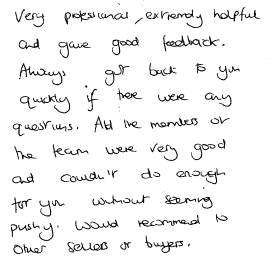 Very professional, extremely helpful
and gave good feedback.
Always got back to you
quickly if there were any
questions. All the members of
the team were very good
and couldn't do enough
for you without seeming
pushy. Would recommend to
other sellers or buyers.